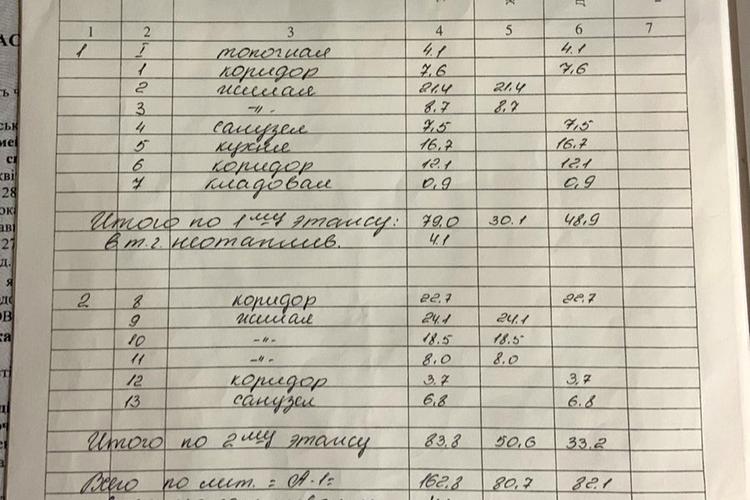 1 2 3 4 5 6 7
1 I топочная 4.1 4.1
1 коридор 7,6 7,6
2 жилая 21.4 21.4
3 -"- 8.7 8,7
4 санузел 7,5 7,5
5 кухня 16,7 16,7
6 коридор 12.1 12.1
7 кладовая 0,9 0,9
Итого по 1му этажу: 79.0 30.1 48,9
в т.г. неотаплив. 4.1
2 8 коридор 22.7 22,7
9 жилая 24.1 24.1
10 -"- 18.5 18.5
11 -"- 8.0 8.0
12 коридор 3.7 3,7
13 санузел 6,8 6.8
Итого по 2му этажу 83.8 50,6 33.2
Всего по лит. = А-1= 162,8 80,7 82.1